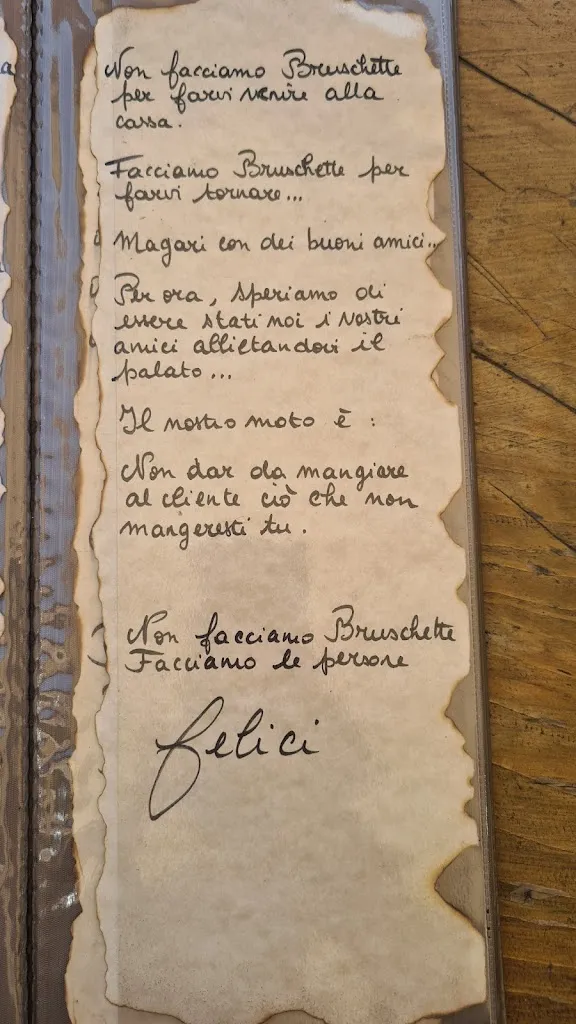 Non facciamo Bruschette
per farvi venire alla
cassa.
Facciamo Bruschette per
farvi tornare...
Magari con dei buoni amici...
Per ora, speriamo di
essere stati noi i vostri
amici allietandovi il
palato...
Il nostro moto è :
Non dar da mangiare
al cliente ciò che non
mangeresti tu.
Non facciamo Bruschette
Facciamo le persone
felici